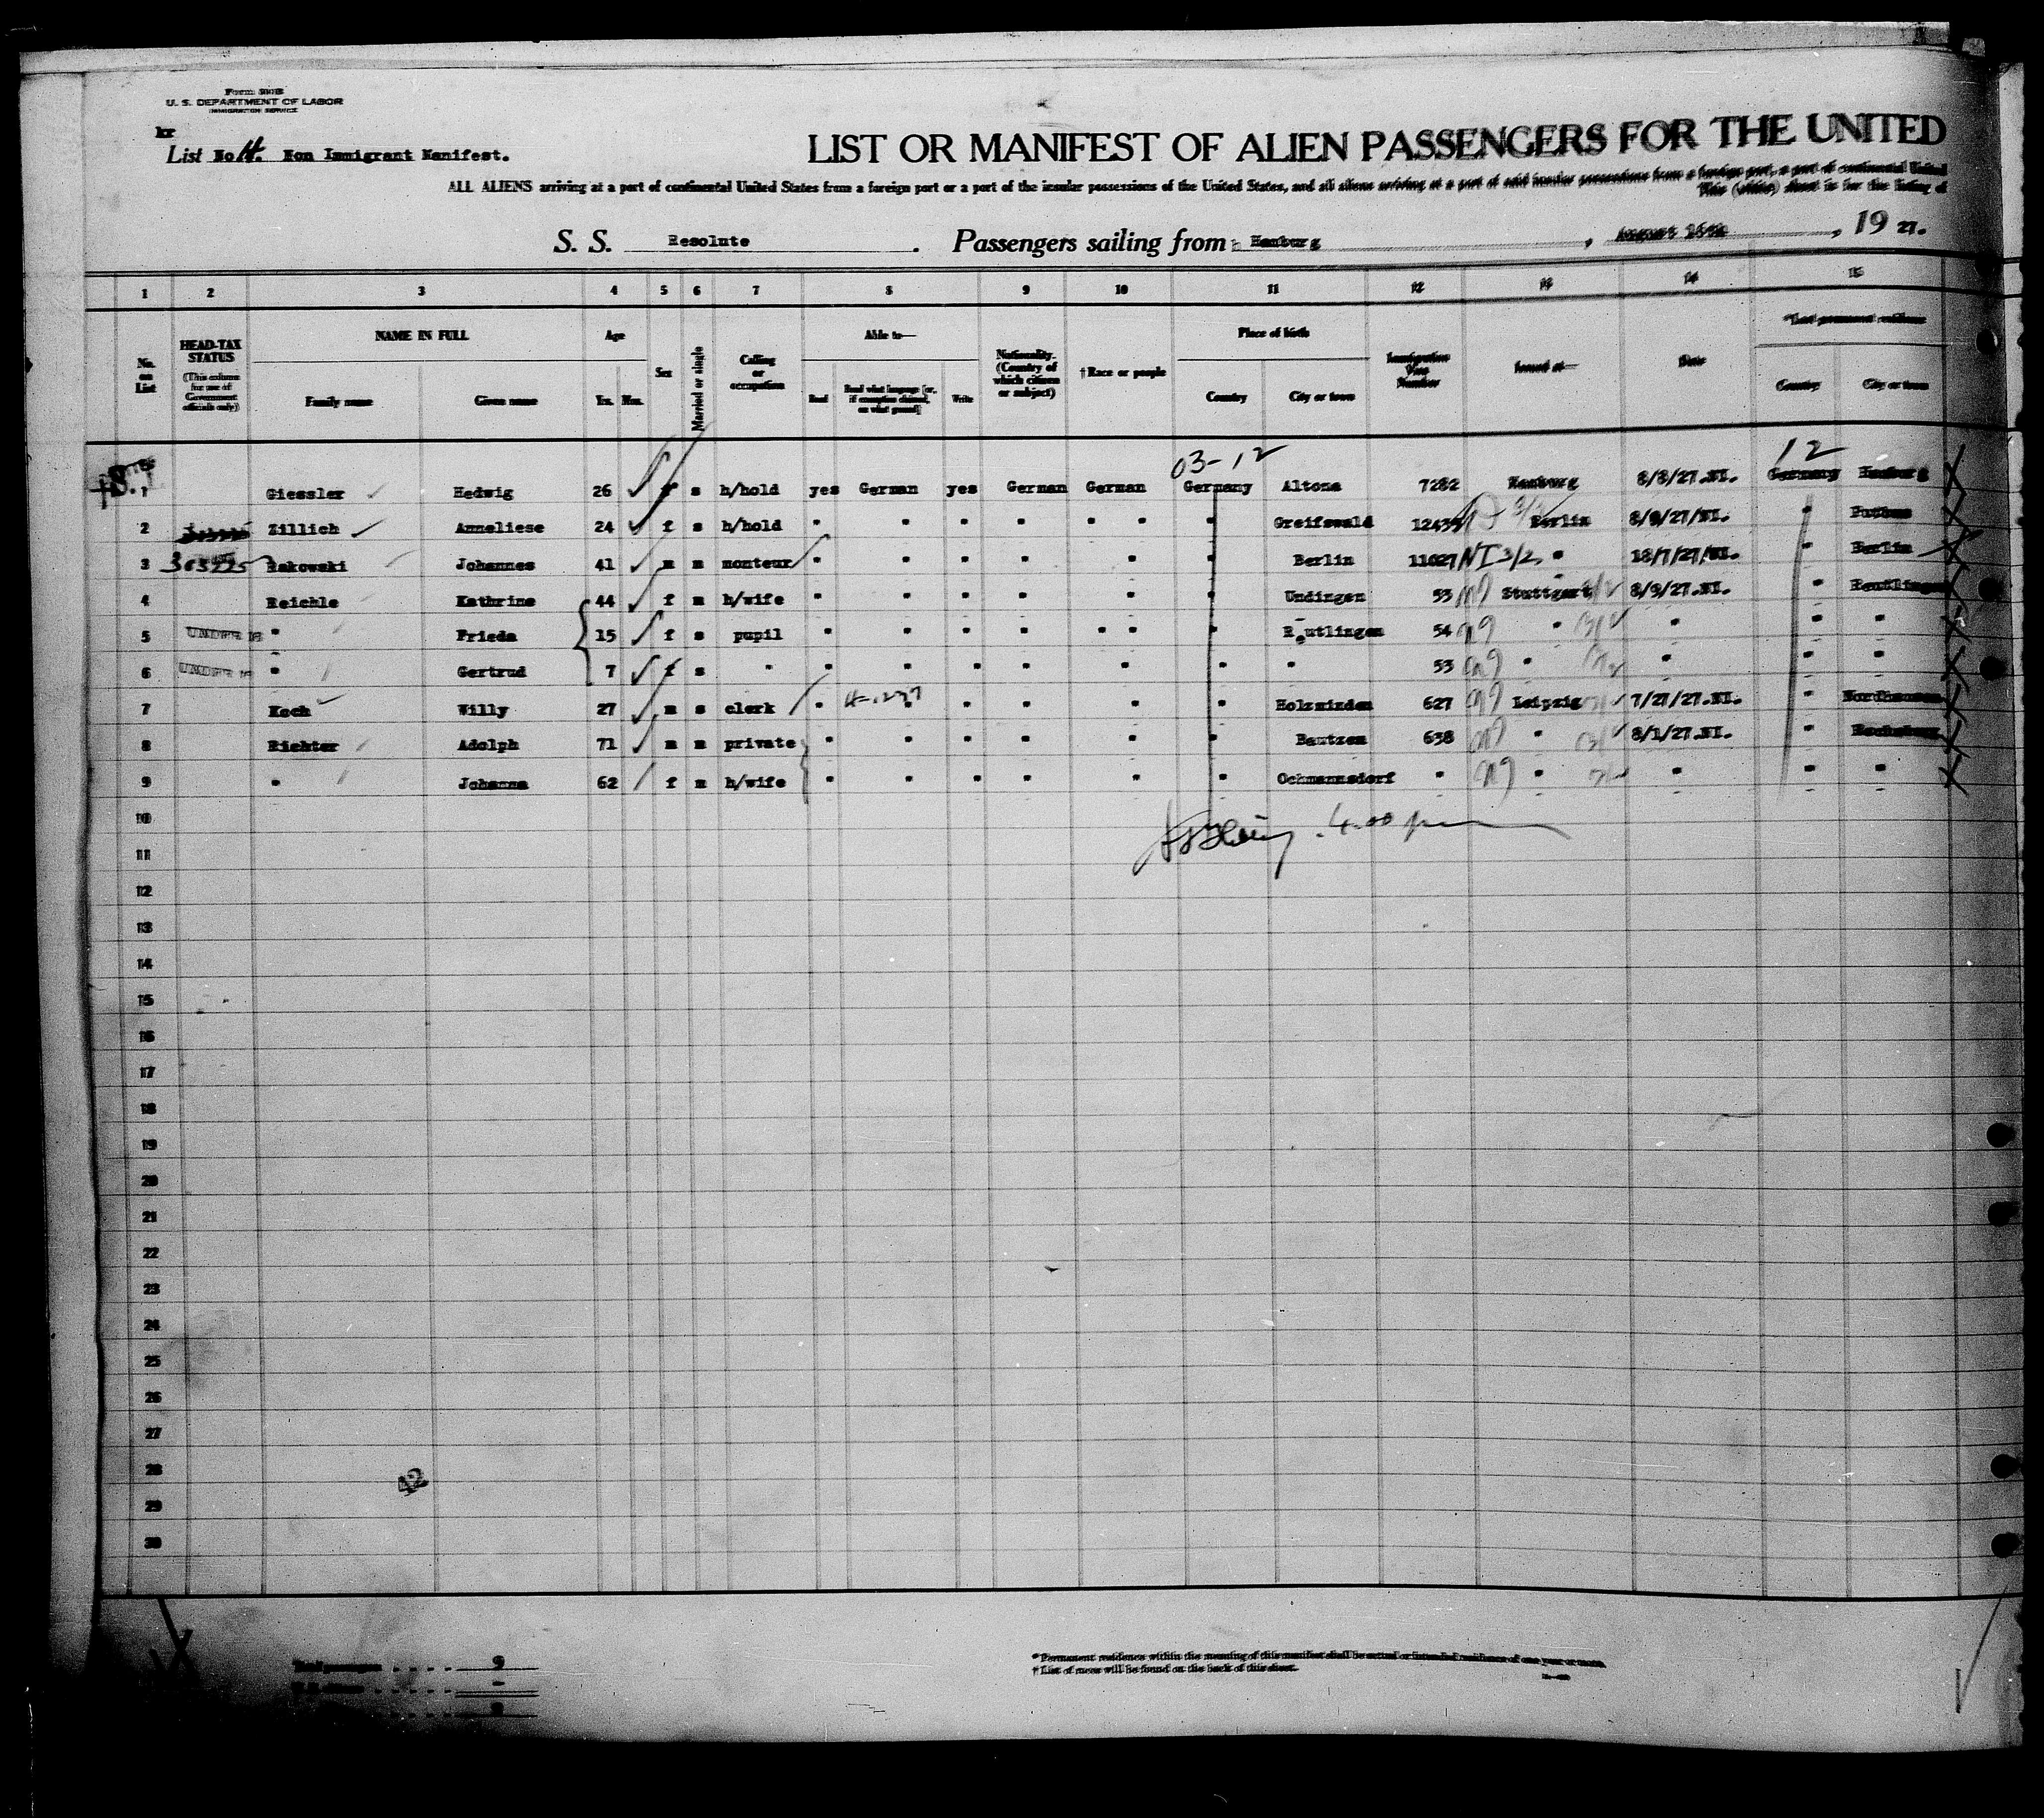 Form 500B
U. S. DEPARTMENT OF LABOR
IMMIGRATION SERVICE
hr
List No 14. Non Immigrant Manifest.
LIST OR MANIFEST OF ALIEN PASSENGERS FOR THE UNITED
ALL ALIENS arriving at a port of continental United States from a foreign port or a port of the insular possessions of the United States, and all aliens arriving at a port of said insular possessions from a foreign port, a port of continental United
This (white) sheet is for the listing of
S. S. Resolute . Passengers sailing from Hamburg , August , 19 27.
1 2 3 4 5 6 7 8 9 10 11 12 13 14 15
No. on List
HEAD-TAX STATUS (This column for use of Government officials only)
NAME IN FULL Family name Given name
Age Yrs. Mos.
Sex
Married or single
Calling or occupation
Able to— Read Read what language [or, if exemption claimed, on what ground] Write
Nationality. (Country of which citizen or subject)
†Race or people
Place of birth Country City or town
Immigration Visa Number
Issued at—
Date
*Last permanent residence Country City or town
03-12 12
1 Giessler Hedwig 26 f s h/hold yes German yes German German Germany Altona 7282 Hamburg 8/8/27.NI. Germany Hamburg
2 Zillich Anneliese 24 f s h/hold " " " " " " " Greifswald 12435 Berlin 8/9/27/NI. " Putbus
3 363225 Rakowski Johannes 41 m m monteur " " " " " " Berlin 11027 NI 3/2 " 18/7/27/NI. " Berlin
4 Reichle Kathrine 44 f m h/wife " " " " " " Undingen 53 Stuttgart 8/9/27.NI. " Reutlingen
5 UNDER 16 " Frieda 15 f s pupil " " " " " " " Reutlingen 54 " " " "
6 UNDER 16 " Gertrud 7 f s " " " " " " " " 53 " " " "
7 Koch Willy 27 m s clerk " " " " " " Holzminden 627 Leipzig 7/27/27.NI. " Nordhausen
8 Richter Adolph 71 m m private " " " " " " Bautzen 638 " 8/1/27.NI. "
9 " Johanna 62 f m h/wife " " " " " " Ochmannsdorf " " " " "
10 4.00 pm
11
12
13
14
15
16
17
18
19
20
21
22
23
24
25
26
27
28
42
29
30
Total passengers 9
U.S. citizens -
9
* Permanent residence within the meaning of this manifest shall be actual or intended residence of one year or more.
† List of races will be found on the back of this sheet.